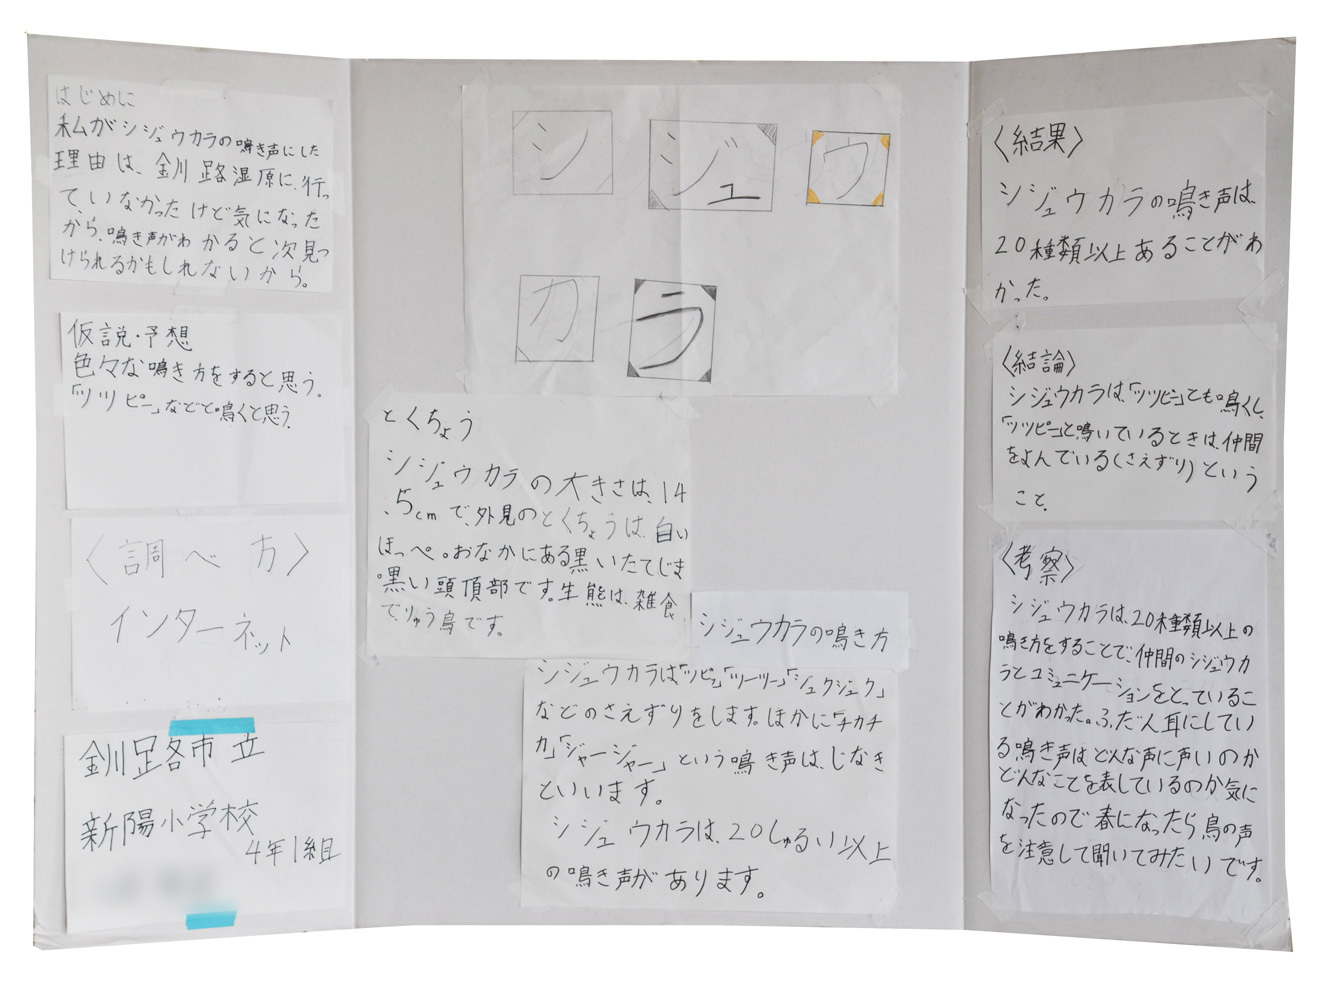 はじめに
私がシジュウカラの鳴き声にした
理由は、釧路湿原に、行っ
ていなかったけど気になった
から、鳴き声がわかると次見つ
けられるかもしれないから。
仮説・予想
色々な鳴き方をすると思う。
「ツツピー」などと鳴くと思う。
〈調べ方〉
インターネット
釧路市立
新陽小学校
4年1組
シジュウ
カラ
とくちょう
シジュウカラの大きさは、14
.5cmで、外見のとくちょうは、白い
ほっぺ。おなかにある黒いたてじま
黒い頭頂部です。生態は、雑食
で、りゅう鳥です。
シジュウカラの鳴き方
シジュウカラは「ツピー」「ツーツー」「ジュクジュク」
などのさえずりをします。ほかに「チカチ
カ」「ジャージャー」という鳴き声は、じなき
といいます。
シジュウカラは、20しゅるい以上
の鳴き声があります。
〈結果〉
シジュウカラの鳴き声は、
20種類以上あることがわ
かった。
〈結論〉
シジュウカラは、「ツツピー」とも鳴くし、
「ツツピー」と鳴いているときは、仲間
をよんでいる(さえずり)という
こと。
〈考察〉
シジュウカラは、20種類以上の
鳴き方をすることで、仲間のシジュウカ
ラとコミュニケーションをとっているこ
とがわかった。ふだん耳にしてい
る鳴き声はどんな声に声いのか
どんなことを表しているのか気に
なったので春になったら鳥の声
を注意して聞いてみたいです。